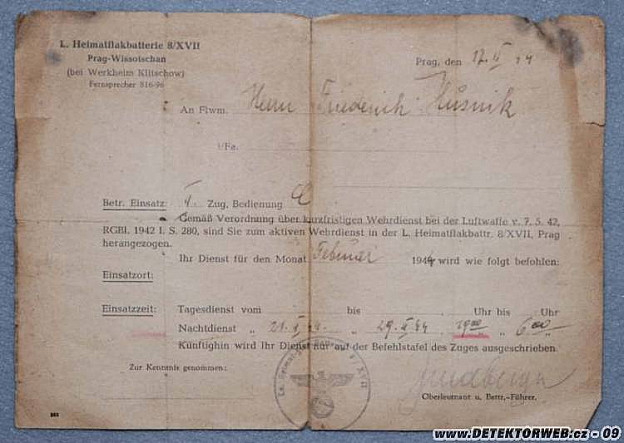 L. Heimatflakbatterie 8/XVII
Prag-Wissotschan
(bei Werkheim Klitschow)
Fernsprecher 816-96
Prag, den 17. II 44
An Flwm. Herrn Friederich Husnik
i/Fa.
Betr. Einsatz: I. Zug, Bedienung E
Gemäß Verordnung über kurzfristigen Wehrdienst bei der Luftwaffe v. 7. 5. 42,
RGBl. 1942 I. S. 280, sind Sie zum aktiven Wehrdienst in der L. Heimatflakbattr. 8/XVII, Prag
herangezogen.
Ihr Dienst für den Monat Februar 1944 wird wie folgt befohlen:
Einsatzort:
Einsatzzeit: Tagesdienst vom bis Uhr bis Uhr
Nachtdienst „ 21. II „ 29. II 44 1900 „ 600 „
Künftighin wird Ihr Dienst nur auf der Befehlstafel des Zuges ausgeschrieben.
Zur Kenntnis genommen:
Oberleutnant u. Battr.-Führer.
www.DETEKTORWEB.cz - 09